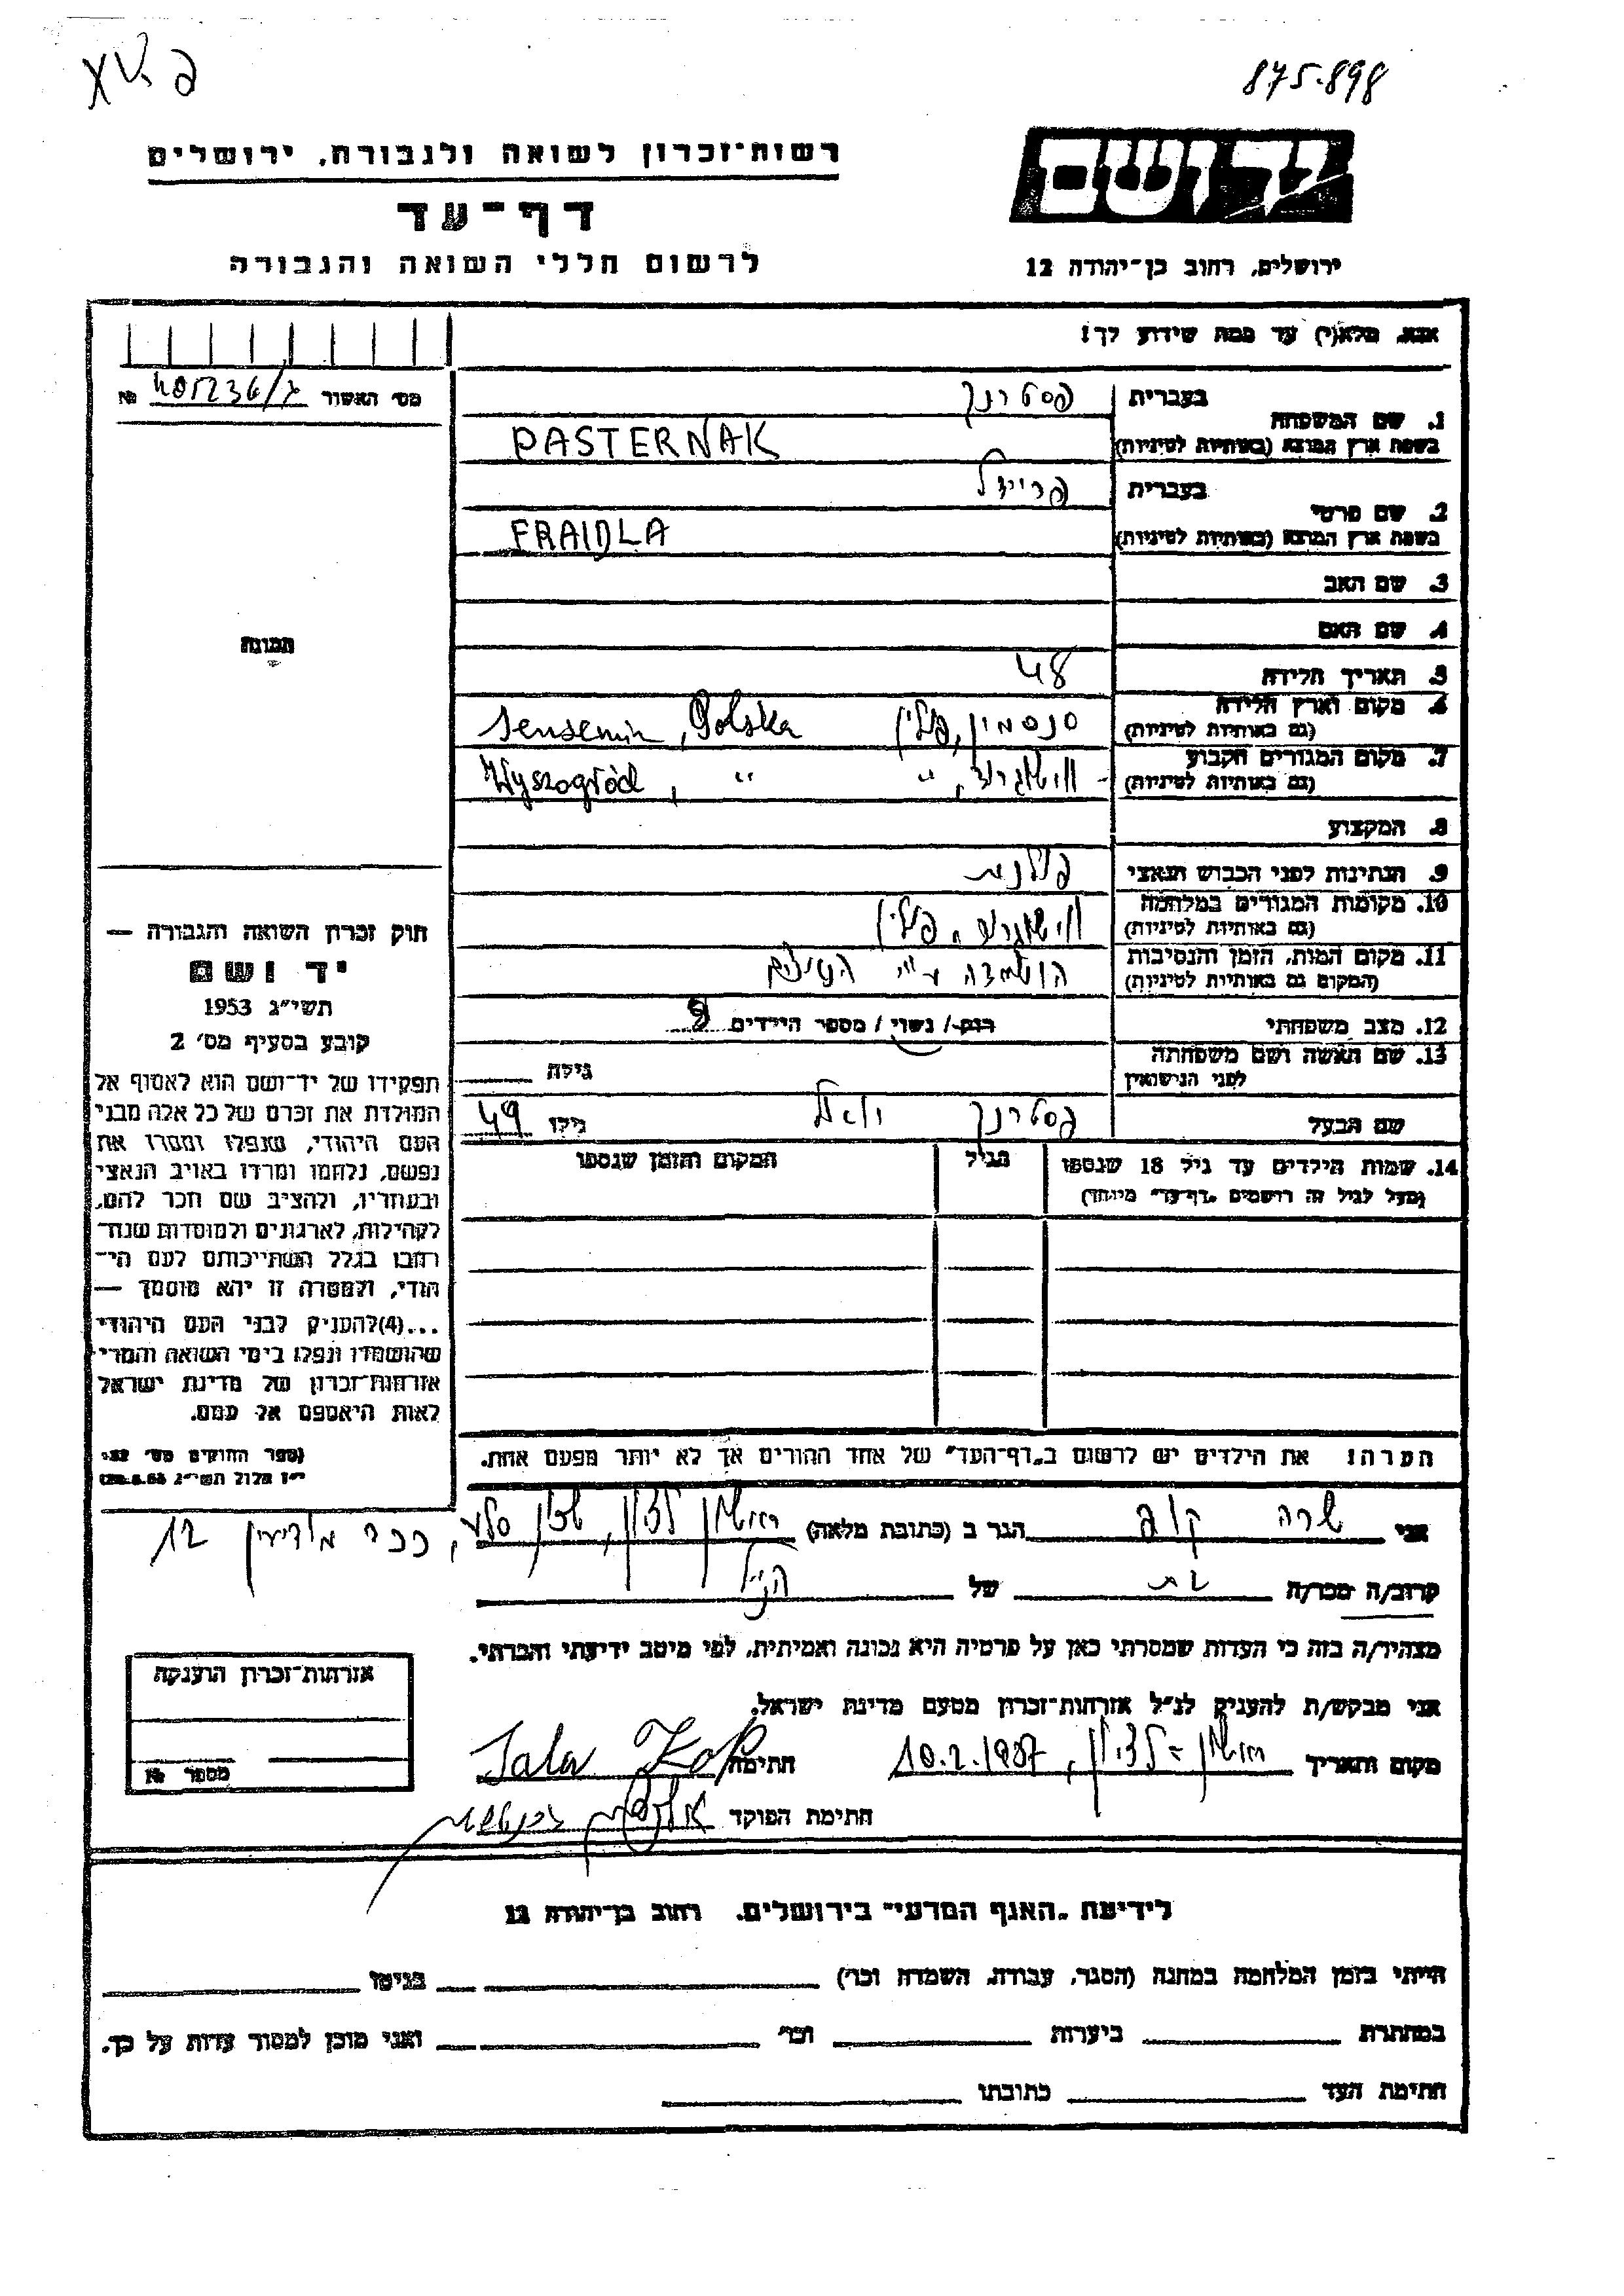 875.898
רשות־זכרון לשואה ולגבורה, ירושלים
יד ושם
דף־עד
לרשום חללי השואה והגבורה
ירושלים, רחוב בן־יהודה 12
אנא, מלא(י) עד כמה שידוע לך!
מס׳ האשור
№
1. שם המשפחה
בעברית פסטרנק
בשפת ארץ המוצא (באותיות לטיניות) PASTERNAK
2. שם פרטי
בעברית פריידל
בשפת ארץ המוצא (באותיות לטיניות) FRAIDLA
3. שם האב
4. שם האם
5. תאריך הלידה 48
6. מקום וארץ הלידה סנסמין, פולין Sensemin, Polska
(גם באותיות לטיניות)
7. מקום המגורים הקבוע וישוגרוד, " Wyszogród, "
(גם באותיות לטיניות)
8. המקצוע
9. הנתינות לפני הכבוש הנאצי פולנית
10. מקומות המגורים במלחמה וישוגרוד, פולין
(גם באותיות לטיניות)
11. מקום המות, הזמן והנסיבות הושמדה ע"י הנאצים
(המקום גם באותיות לטיניות)
12. מצב משפחתי רוק / נשוי / מספר הילדים
13. שם האשה ושם משפחתה
לפני הנישואין
גילה
שם הבעל פסטרנק יואל גילו 49
14. שמות הילדים עד גיל 18 שנספו
(מעל לגיל זה רושמים „דף־עד" מיוחד)
הגיל
המקום והזמן שנספו
הערה: את הילדים יש לרשום ב„דף־העד" של אחד ההורים אך לא יותר מפעם אחת.
תמונה
חוק זכרון השואה והגבורה —
יד ושם
תשי״ג 1953
קובע בסעיף מס׳ 2
תפקידו של יד־ושם הוא לאסוף אל
המולדת את זכרם של כל אלה מבני
העם היהודי, שנפלו ומסרו את
נפשם, נלחמו ומרדו באויב הנאצי
ובעוזריו, ולהציב שם וזכר להם,
לקהילות, לארגונים ולמוסדות שנח־
רבו בגלל השתייכותם לעם הי־
הודי, ולמטרה זו יהא מוסמך —
...(4) להעניק לבני העם היהודי
שהושמדו ונפלו בימי השואה והמרי
אזרחות־זכרון של מדינת ישראל
לאות היאספם אל עמם.
(ספר החוקים מס׳ 132,
י״ז אלול תשי״ג 28.8.53)
אני שרה קופ הגר ב (כתובת מלאה) ראשון לציון, שכון סלע, ככר מודיעין 12
קרוב/ה מכר/ה בת של הנ"ל
מצהיר/ה בזה כי העדות שמסרתי כאן על פרטיה היא נכונה ואמיתית, לפי מיטב ידיעתי והכרתי.
אני מבקש/ת להעניק לנ״ל אזרחות־זכרון מטעם מדינת ישראל.
מקום ותאריך ראשון-לציון, חתימה Sala Kop
חתימת הפוקד
אזרחות־זכרון הוענקה
מספר №
לידיעת „האגף המדעי" בירושלים, רחוב בן־יהודה 12
הייתי בזמן המלחמה במחנה (הסגר, עבודה, השמדה וכו׳) בגיטו
במחתרת ביערות וכו׳ ואני מוכן למסור עדות על כך.
חתימת העד כתובתו